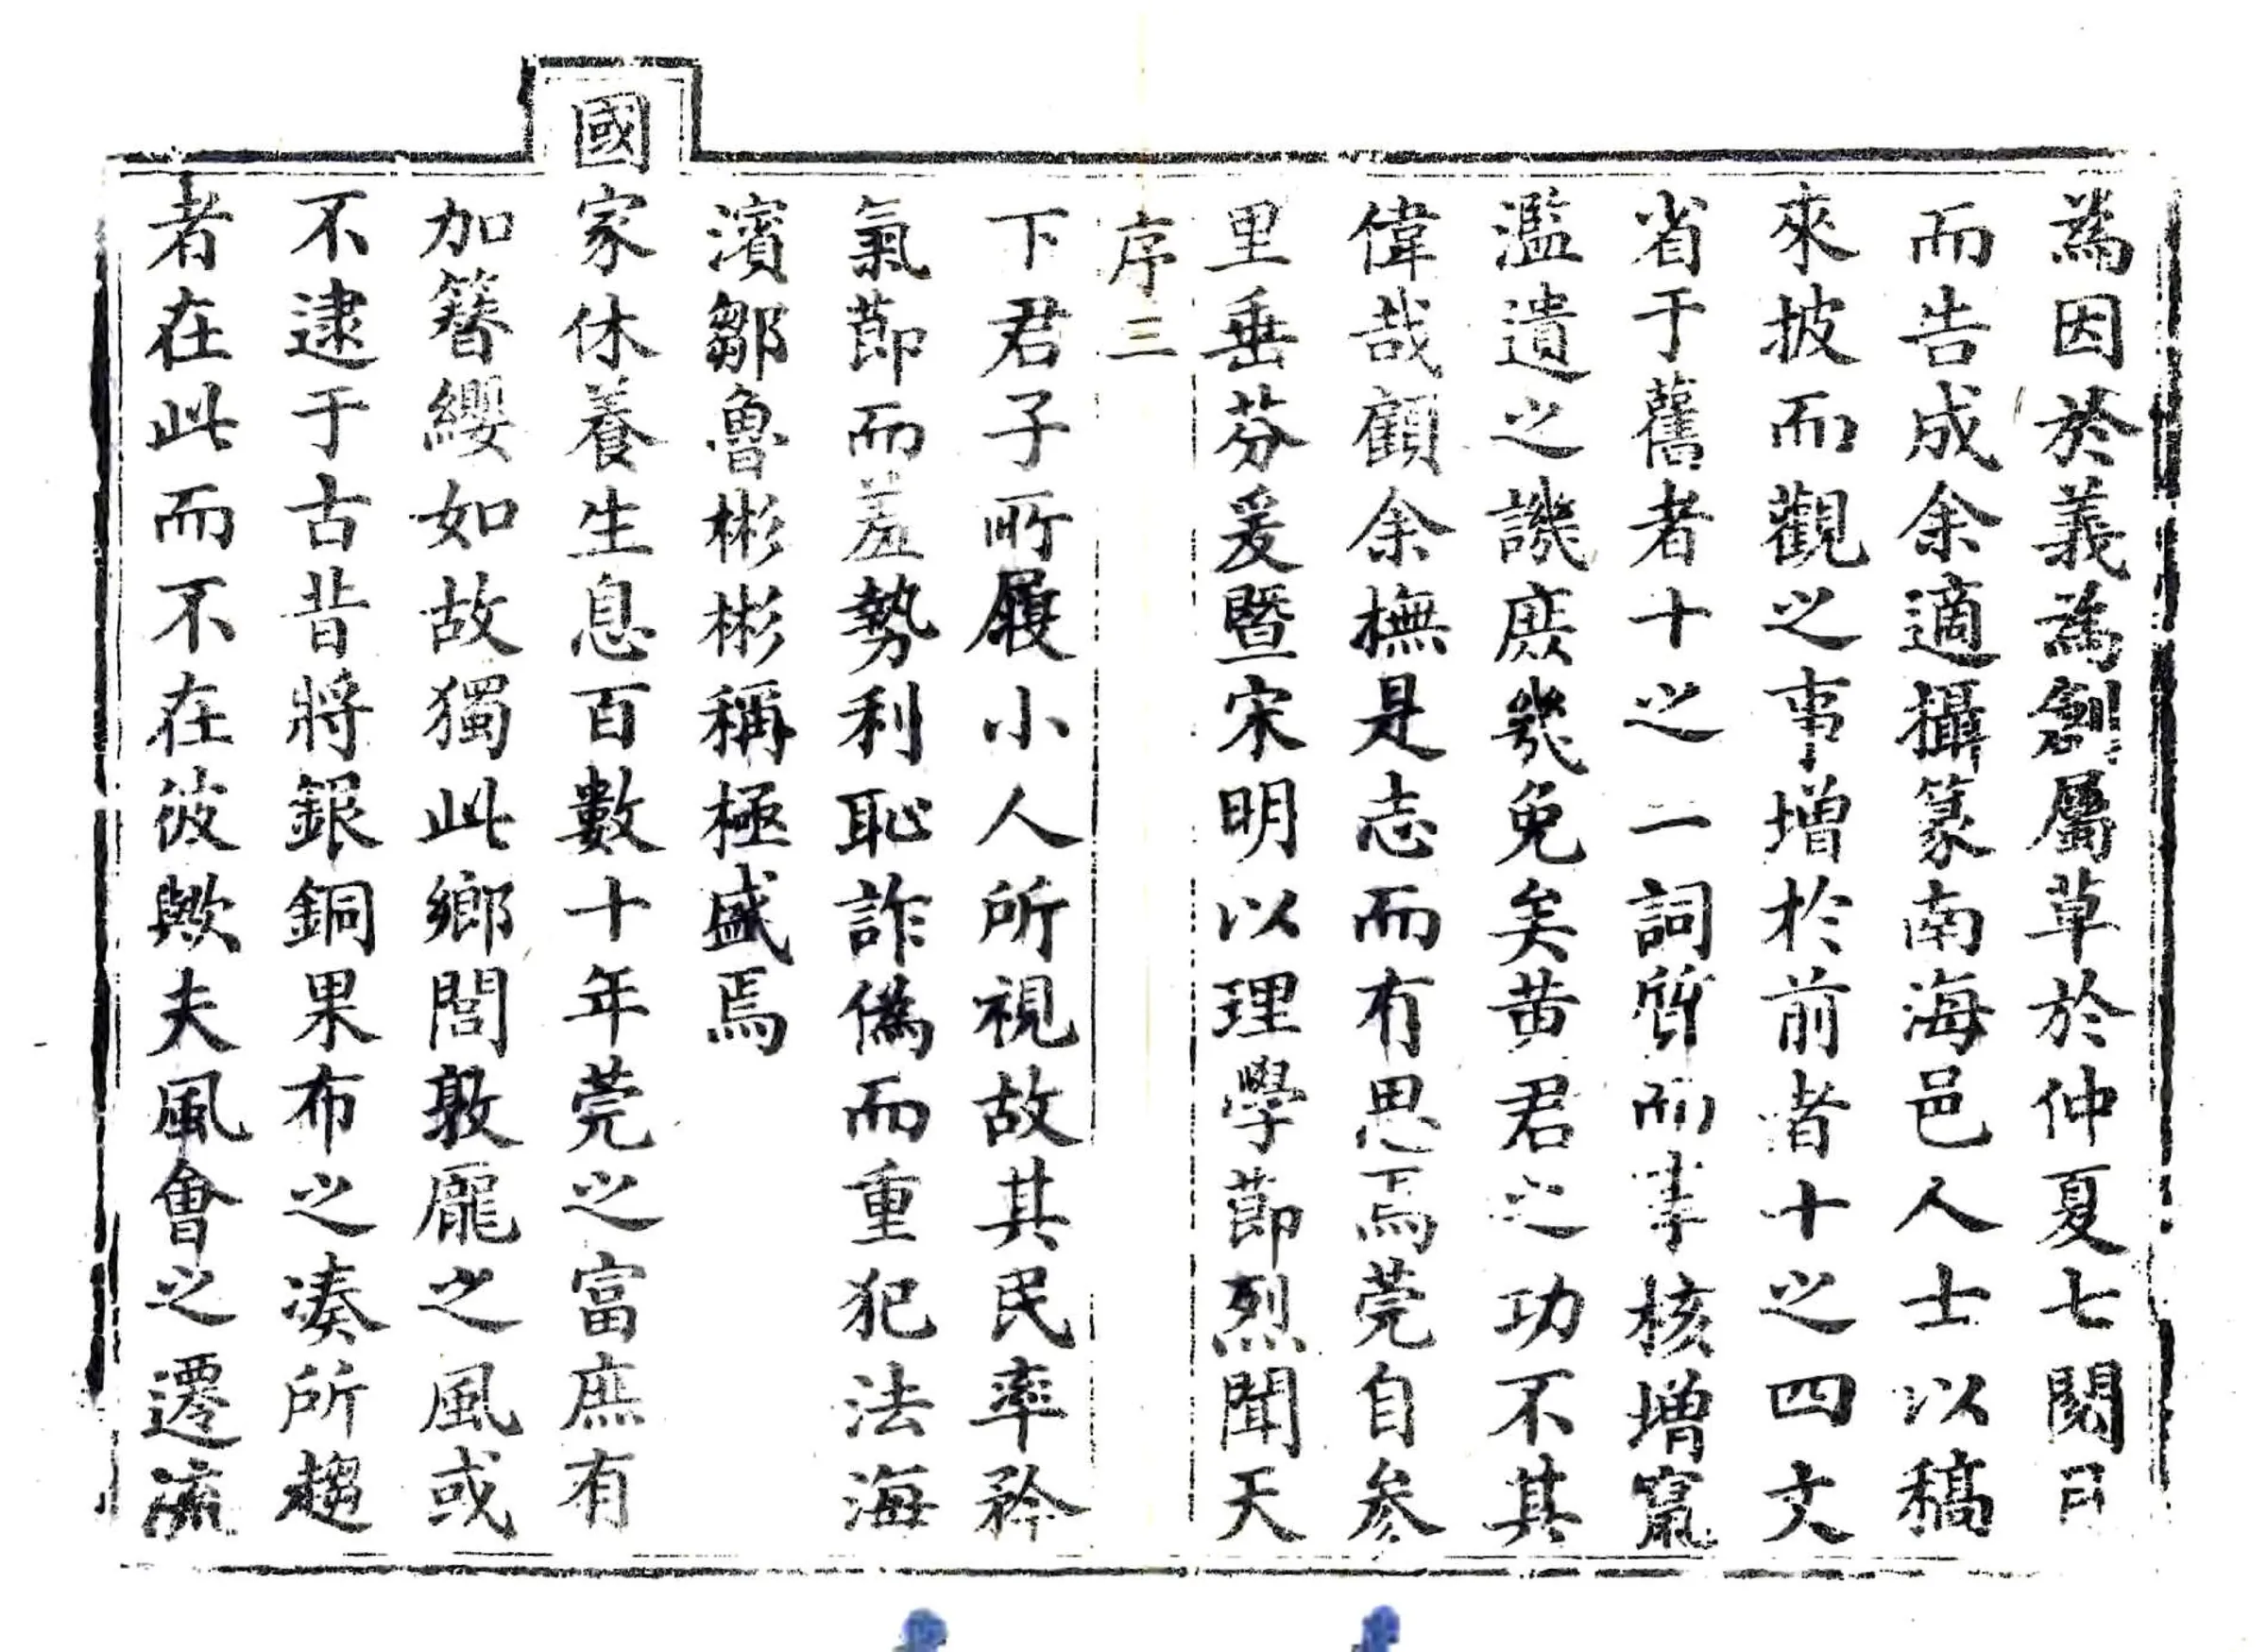 為因於義為創屬草於仲夏七閱月
而告成余適攝篆南海邑人士以稿
來披而觀之事增於前者十之四文
省于舊者十之一詞質而事核增竄
濫遺之譏庶幾免矣黄君之功不其
偉哉顧余撫是志而有思焉莞自叅
里垂芬爰暨宋明以理學節烈聞天
序三
下君子所履小人所視故其民率矜
氣節而羞勢利恥詐偽而重犯法海
濱鄒魯彬彬稱極盛焉
國家休養生息百數十年莞之富庶有
加簪纓如故獨此鄉閭敦龐之風或
不逮于古昔將銀銅果布之湊所趨
者在此而不在彼歟夫風會之遷流